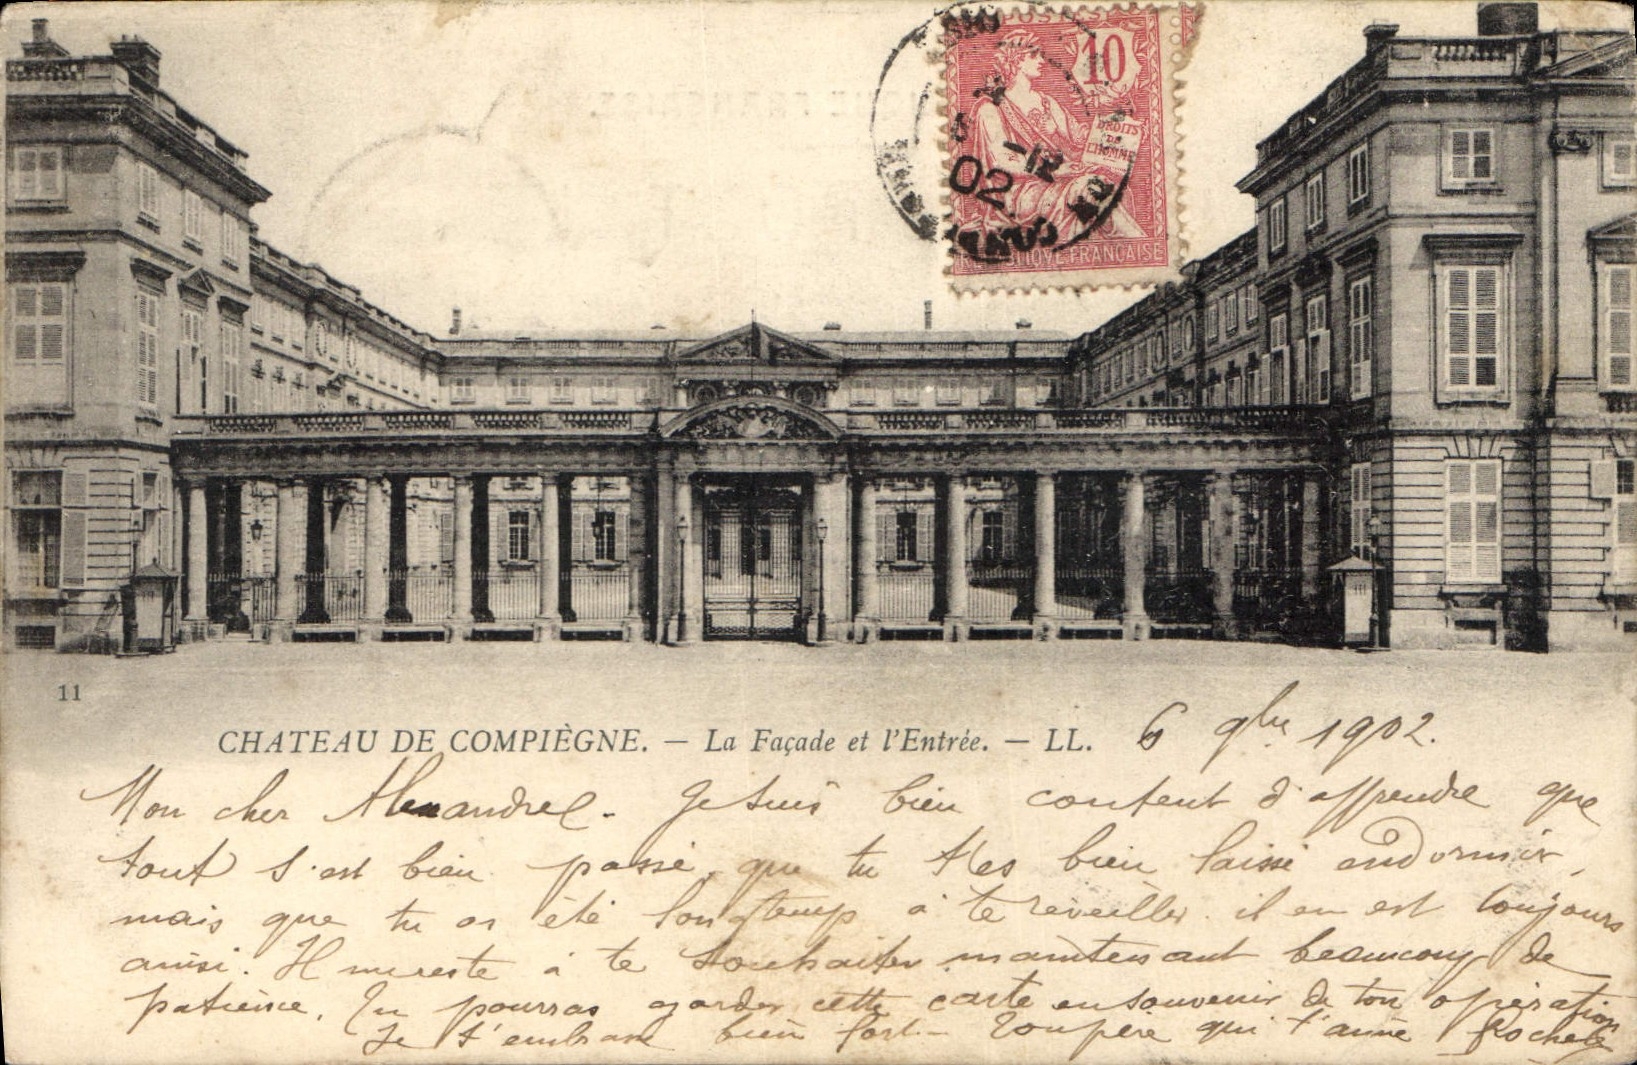 10
DROITS
DE
L'HOMME
-12
02
RÉPUBLIQUE FRANÇAISE
11
CHATEAU DE COMPIÈGNE. — La Façade et l'Entrée. — LL. 6 9bre 1902.
Mon cher Alexandre. Je suis bien content d'apprendre que
tout s'est bien passé, que tu t'es bien laissé endormir,
mais que tu as été longtemps à te réveiller. il en est toujours
ainsi. Il me reste à te souhaiter maintenant beaucoup de
patience. Tu pourras garder cette carte en souvenir de ton opération
Je t'embrasse bien fort - Ton père qui t'aime